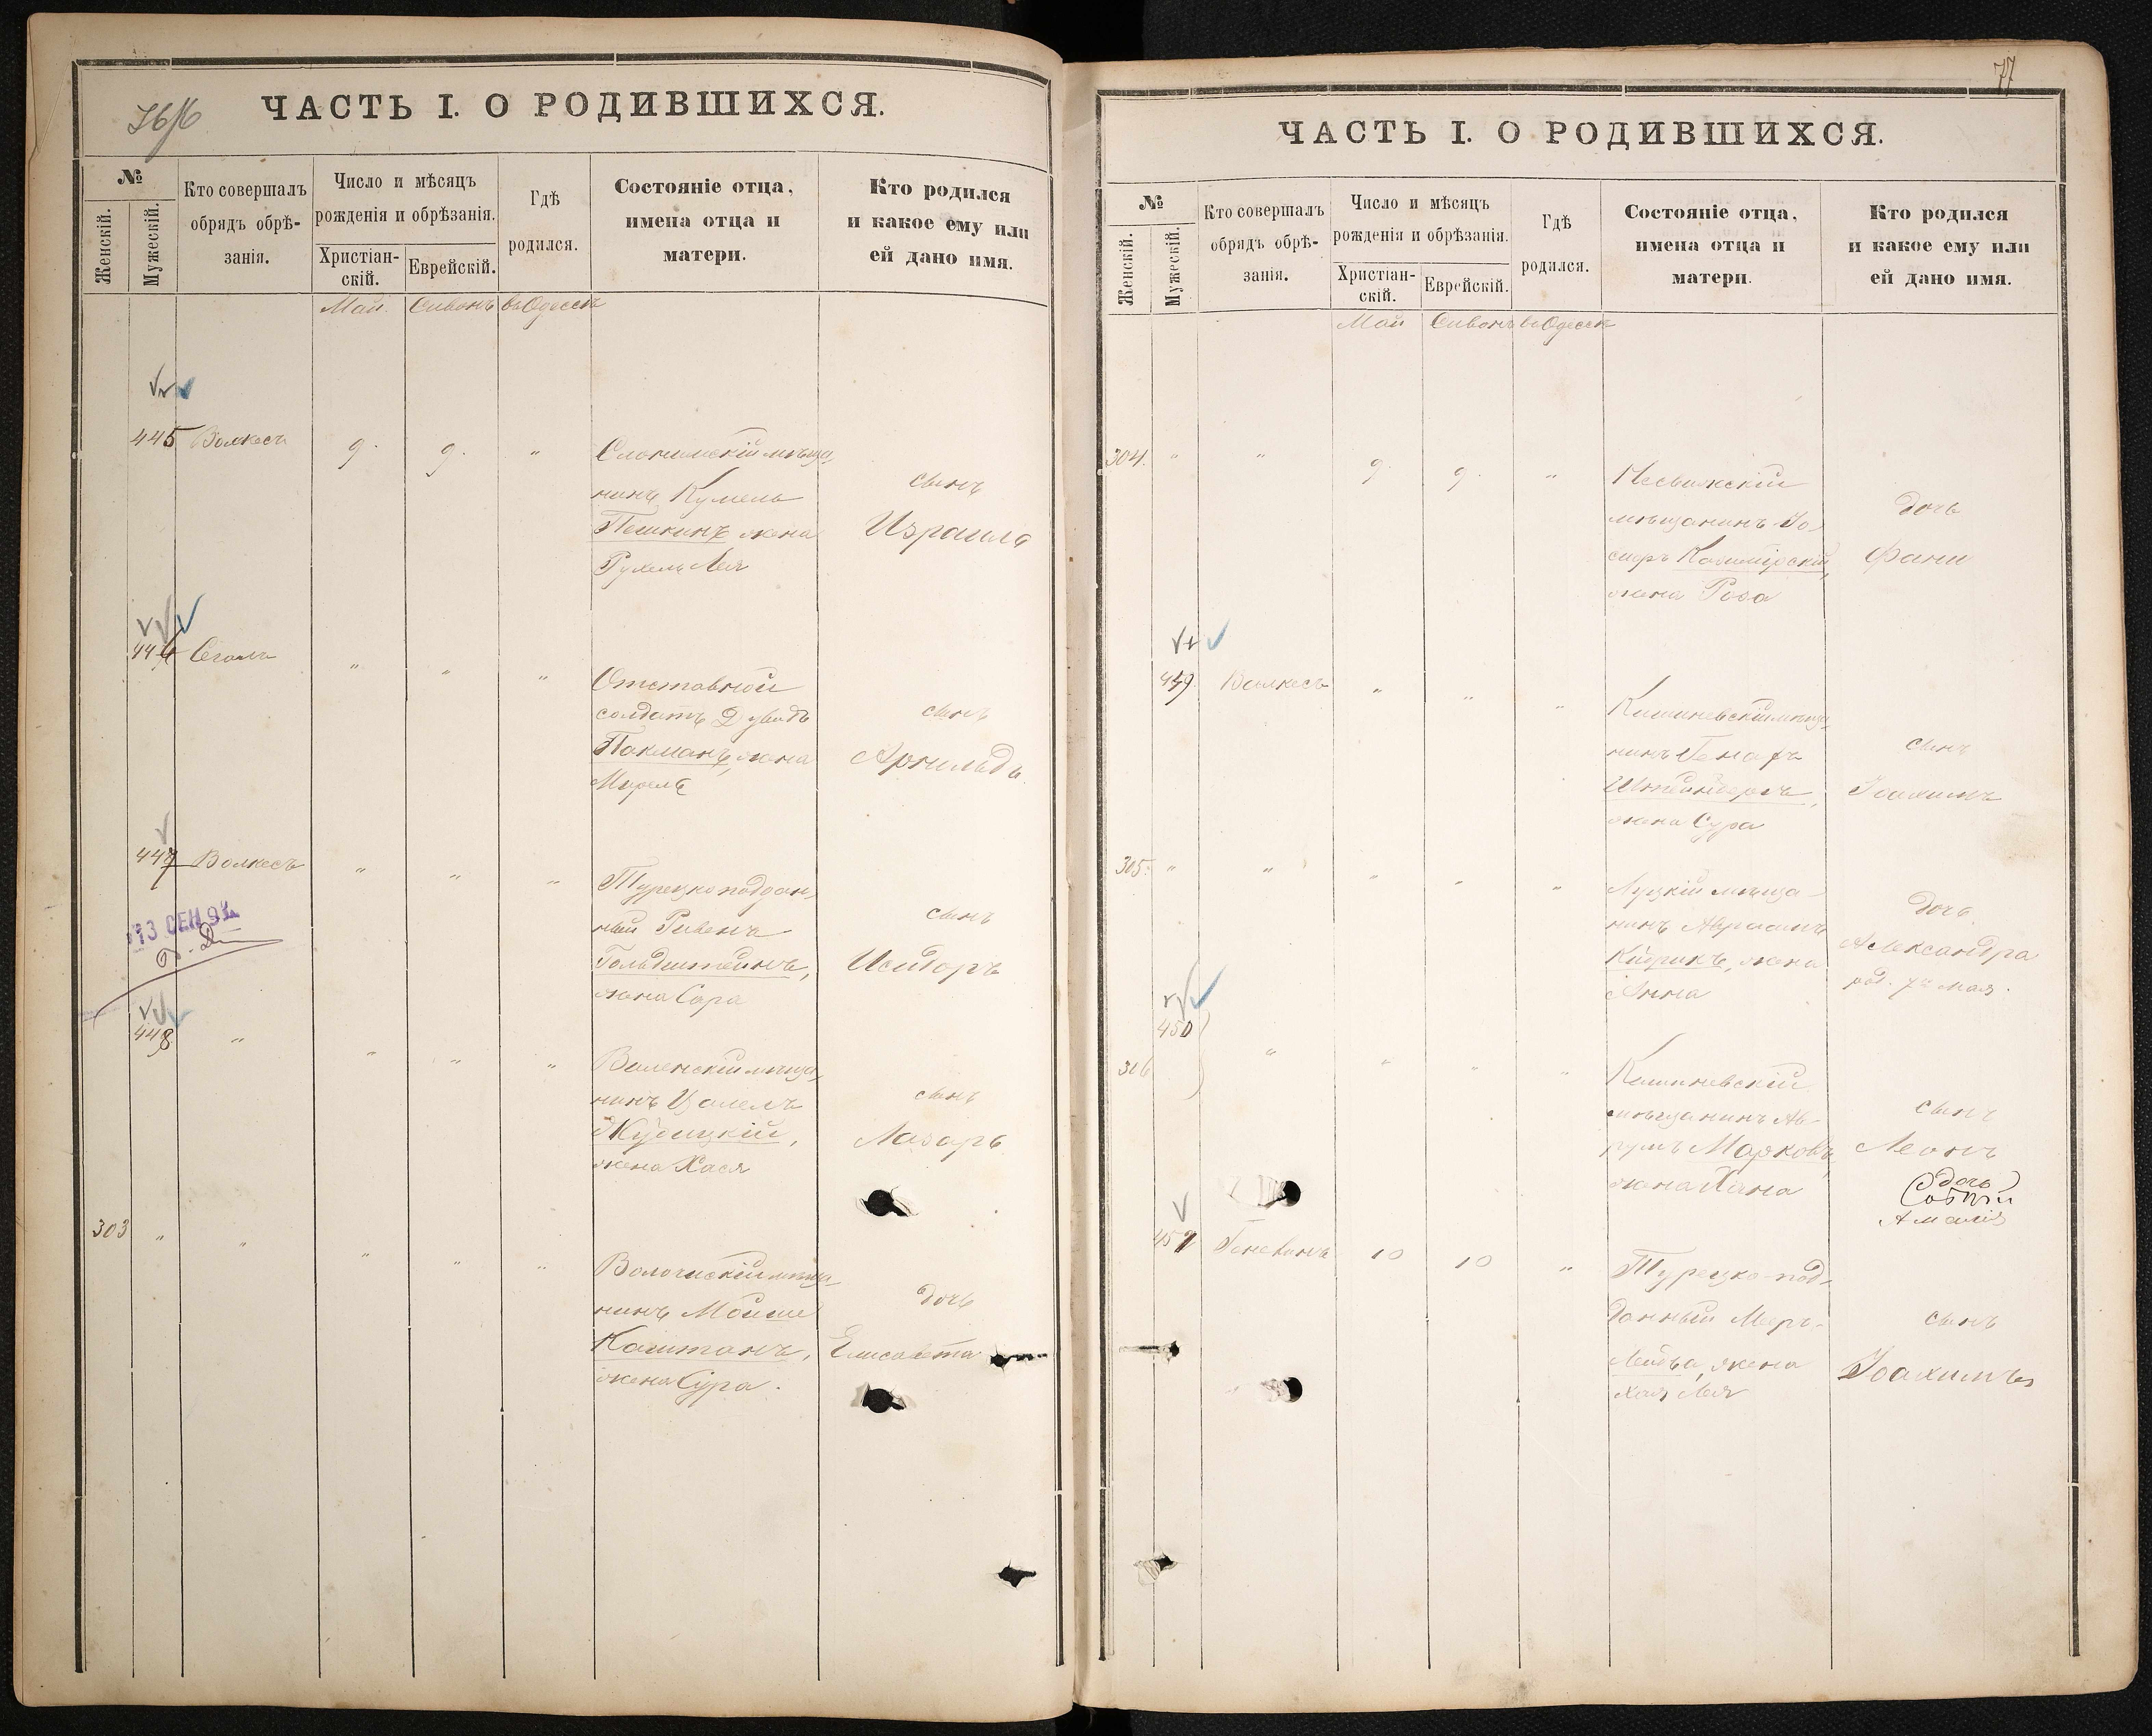 ЧАСТЬ I. О РОДИВШИХСЯ.
№
Женскій.
Мужескій.
Кто совершалъ
обрядъ обрѣ-
занія.
Число и мѣсяцъ
рожденія и обрѣзанія.
Христіан-
скій.
Еврейскій.
Гдѣ
родился.
Состояніе отца,
имена отца и
матери.
Кто родился
и какое ему или
ей дано имя.
Май. Сивонъ въ Одессѣ
445 Волкесъ 9. 9. "
Слонимскій мѣща-
нинъ Кумель
Пешкинъ жена
Рухель Лея
сынъ
Израиль
446 Сегалъ " " "
Отставной
солдатъ Дувидъ
Пакманъ, жена
Мирель
сынъ
Арнильдъ.
447 Волкесъ " " "
Турецко поддан-
ный Рувенъ
Гольдштейнъ,
жена Сара
сынъ
Исидоръ
13 СЕН 92
448 " " " "
Виленскій мѣща-
нинъ Цалелъ
Жудицкій,
жена Хася
сынъ
Лазарь
303 " " " " "
Волочискій мѣща-
нинъ Мойше
Каштанъ,
жена Сура.
дочь
Елисавета
77
ЧАСТЬ I. О РОДИВШИХСЯ.
№
Женскій.
Мужескій.
Кто совершалъ
обрядъ обрѣ-
занія.
Число и мѣсяцъ
рожденія и обрѣзанія.
Христіан-
скій.
Еврейскій.
Гдѣ
родился.
Состояніе отца,
имена отца и
матери.
Кто родился
и какое ему или
ей дано имя.
Май Сивонъ въ Одессѣ
304. " " 9. 9. "
Несвижскій
мѣщанинъ Іо-
сифъ Казимірскій,
жена Роза
дочь
Фани
449. Волкесъ " " "
Кишиневскій мѣща-
нинъ
Штейнбергъ,
жена Сура
сынъ
Іоахимъ
305. " " " " "
Луцкій мѣща-
нинъ Авраамъ
жена
Анна
дочь
Александра
род. 7го мая.
450
306 " " " "
Кишиневскій
мѣщанинъ Ав-
румъ Марковъ,
жена Хана
сынъ
Леонъ
дочь
Амалія
Геневинъ 10 10 "
Турецко-под-
данный Меръ-
жена
Хая Лея
сынъ
Іоахимъ